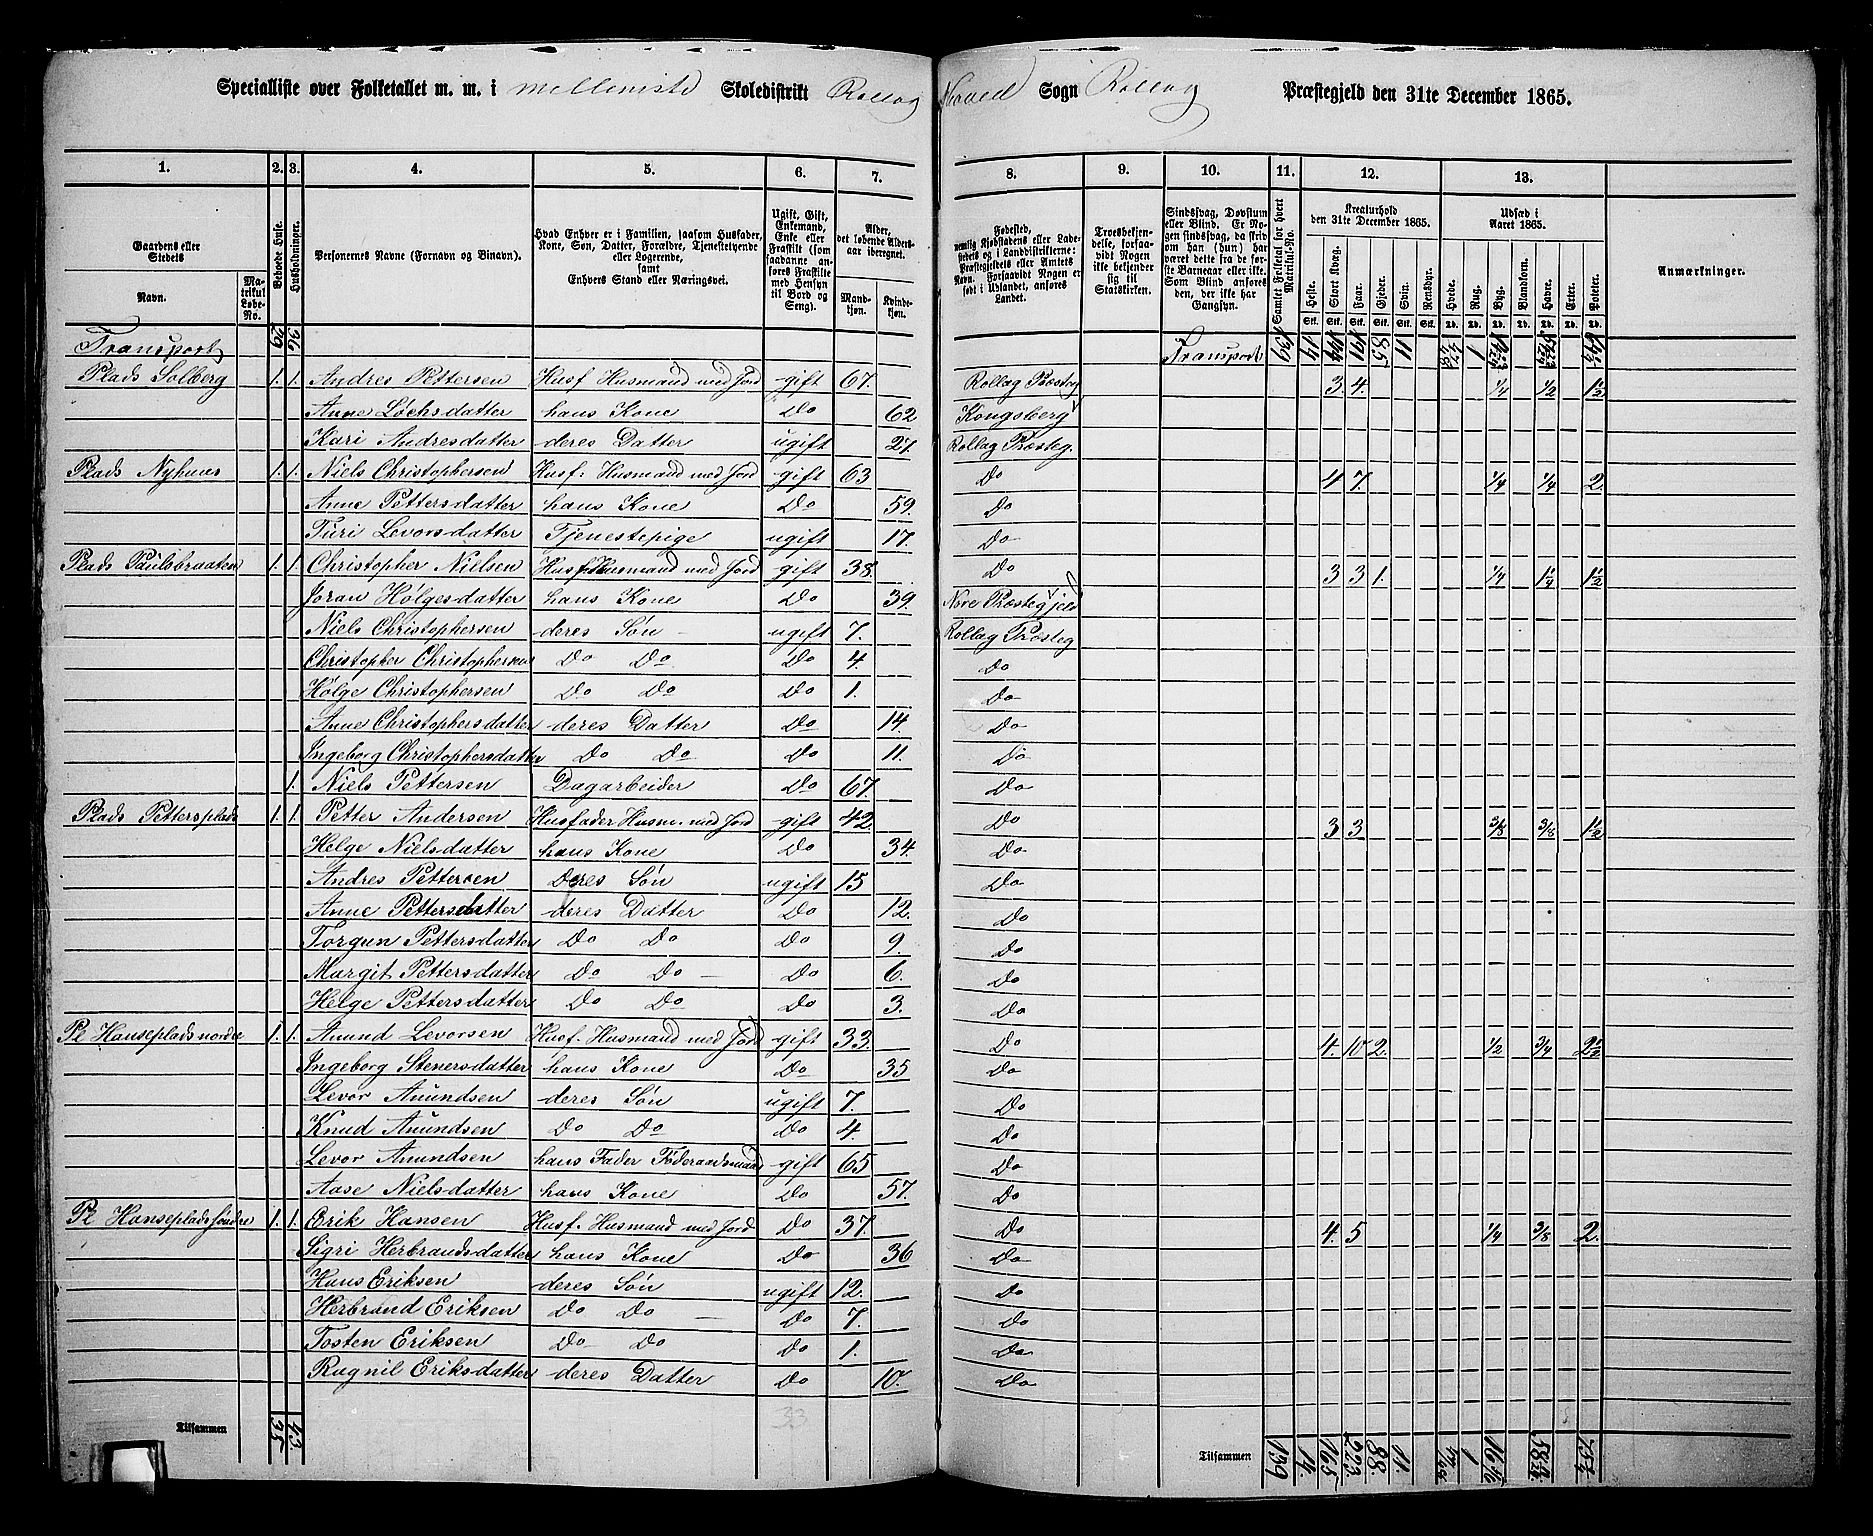 Specialliste over Folketallet m. m. i Skoledistrikt Rollag Hoved Sogn Rollag Præstegjeld den 31te December 1865.
1. 2. 3. 4. 5. 6. 7. 8. 9. 10. 11. 12. 13.
Gaardens eller Stedets Navn.
Matrikul Løbe-No.
Beboede Huse.
Husholdninger.
Personernes Navne (Fornavn og Binavn).
Hvad Enhver er i Familien, saasom Husfader, Kone, Søn, Datter, Forældre, Tjenestetyende eller Logerende, samt Enhvers Stand eller Næringsvei.
Ugift, Gift, Enkemand, Enke eller Fraskilt (som saadanne anføres Fraskilte med Hensyn til Bord og Seng).
Alder, det løbende Aldersaar iberegnet.
Mandkjøn. Kvindekjøn.
Fødested, nemlig Kjøbstadens eller Ladestedets og i Landdistrikterne: Præstegjeldets eller Amtets Navn. Forsaavidt Nogen er født i Udlandet, anføres Landet.
Troesbekjendelse, forsaavidt Nogen ikke bekjender sig til Statskirken.
Sindssvag, Døvstum eller Blind. Er Nogen sindssvag, da skriv om han (hun) har været dette fra de første Barneaar eller ikke. Som Blind anføres den, der ikke har Gangsyn.
Samlet Folketal for hvert Matrikul-No.
Kreaturhold den 31te December 1865.
Heste. Stort Kvæg. Faar. Gjeder. Svin. Rensdyr.
Udsæd i Aaret 1865.
Hvede. Rug. Byg. Blandkorn. Havre. Erter. Poteter.
Anmærkninger.
Transport 29 36 Transport 139 14
Plads Solberg 1. 1. Andres Pettersen Husf Husmand med Jord gift 67. Rollag Præsteg 3. 4. 1/4 1/2 1 1/2
Anne Lochsdatter hans Kone Do 62 Kongsberg
Kari Andresdatter deres Datter ugift 27. Rollag Præsteg.
Plads Nyhuus 1. 1. Niels Christophersen Husf: Husmand med Jord gift 63 Do 4 7. 1/4 1/4 2.
Anne Pettersdatter hans Kone Do 59. Do
Turi Levorsdatter Tjenestepige ugift 17. Do
Plads Paulsbraaten 1. 1. Christopher Nielsen Husf Husmand med Jord gift 38. Do 3 3 1. 1/4 1 1/4 1 1/2
Joran Holgesdatter hans Kone Do 39. Nore Præstegjeld
Niels Christophersen deres Søn ugift 7. Rollag Præsteg
Christopher Christophersen Do Do Do 4. Do
Holge Christophersen Do Do Do 1. Do
Anne Christophersdatter deres Datter Do 14. Do
Ingeborg Christophersdatter Do Do Do 11. Do
1. Niels Pettersen Dagarbeider Do 67. Do
Plads Pettersplads 1. 1. Petter Andersen Husfader Husm. med Jord gift 42. Do 3 3 3/8 3/8 1 1/2
Helge Nielsdatter hans Kone Do 34. Do
Andres Pettersen Deres Søn ugift 15 Do
Anne Pettersdatter deres Datter Do 12. Do
Torgun Pettersdatter Do Do Do 9. Do
Margit Pettersdatter Do Do Do 6. Do
Helge Pettersdatter Do Do Do 3. Do
Pl Hanseplads nordre 1. 1. Amund Levorsen Husf. Husmand med Jord gift 33. Do 4. 10 2. 1/2 3/4 2 1/2
Ingeborg Stenersdatter hans Kone Do 35 Do
Levor Amundsen deres Søn ugift 7. Do
Knud Amundsen Do Do Do 4. Do
Levor Amundsen hans Fader Føderaadsmand gift 65 Do
Aase Nielsdatter hans Kone Do 57. Do
Pl Hanseplads søndre 1. 1. Erik Hansen Husf. Husmand med Jord Do 37. Do 4. 5 1/4 3/8 2.
Sigri Herbrandsdatter hans Kone Do 36 Do
Hans Eriksen deres Søn ugift 12. Do
Herbrand Eriksen Do Do Do 7. Do
Tosten Eriksen Do Do Do 1. Do
Ragnil Eriksdatter deres Datter Do 10. Do
33
Tilsammen 35 43. Tilsammen 139 14. 165 223. 88. 11. 1